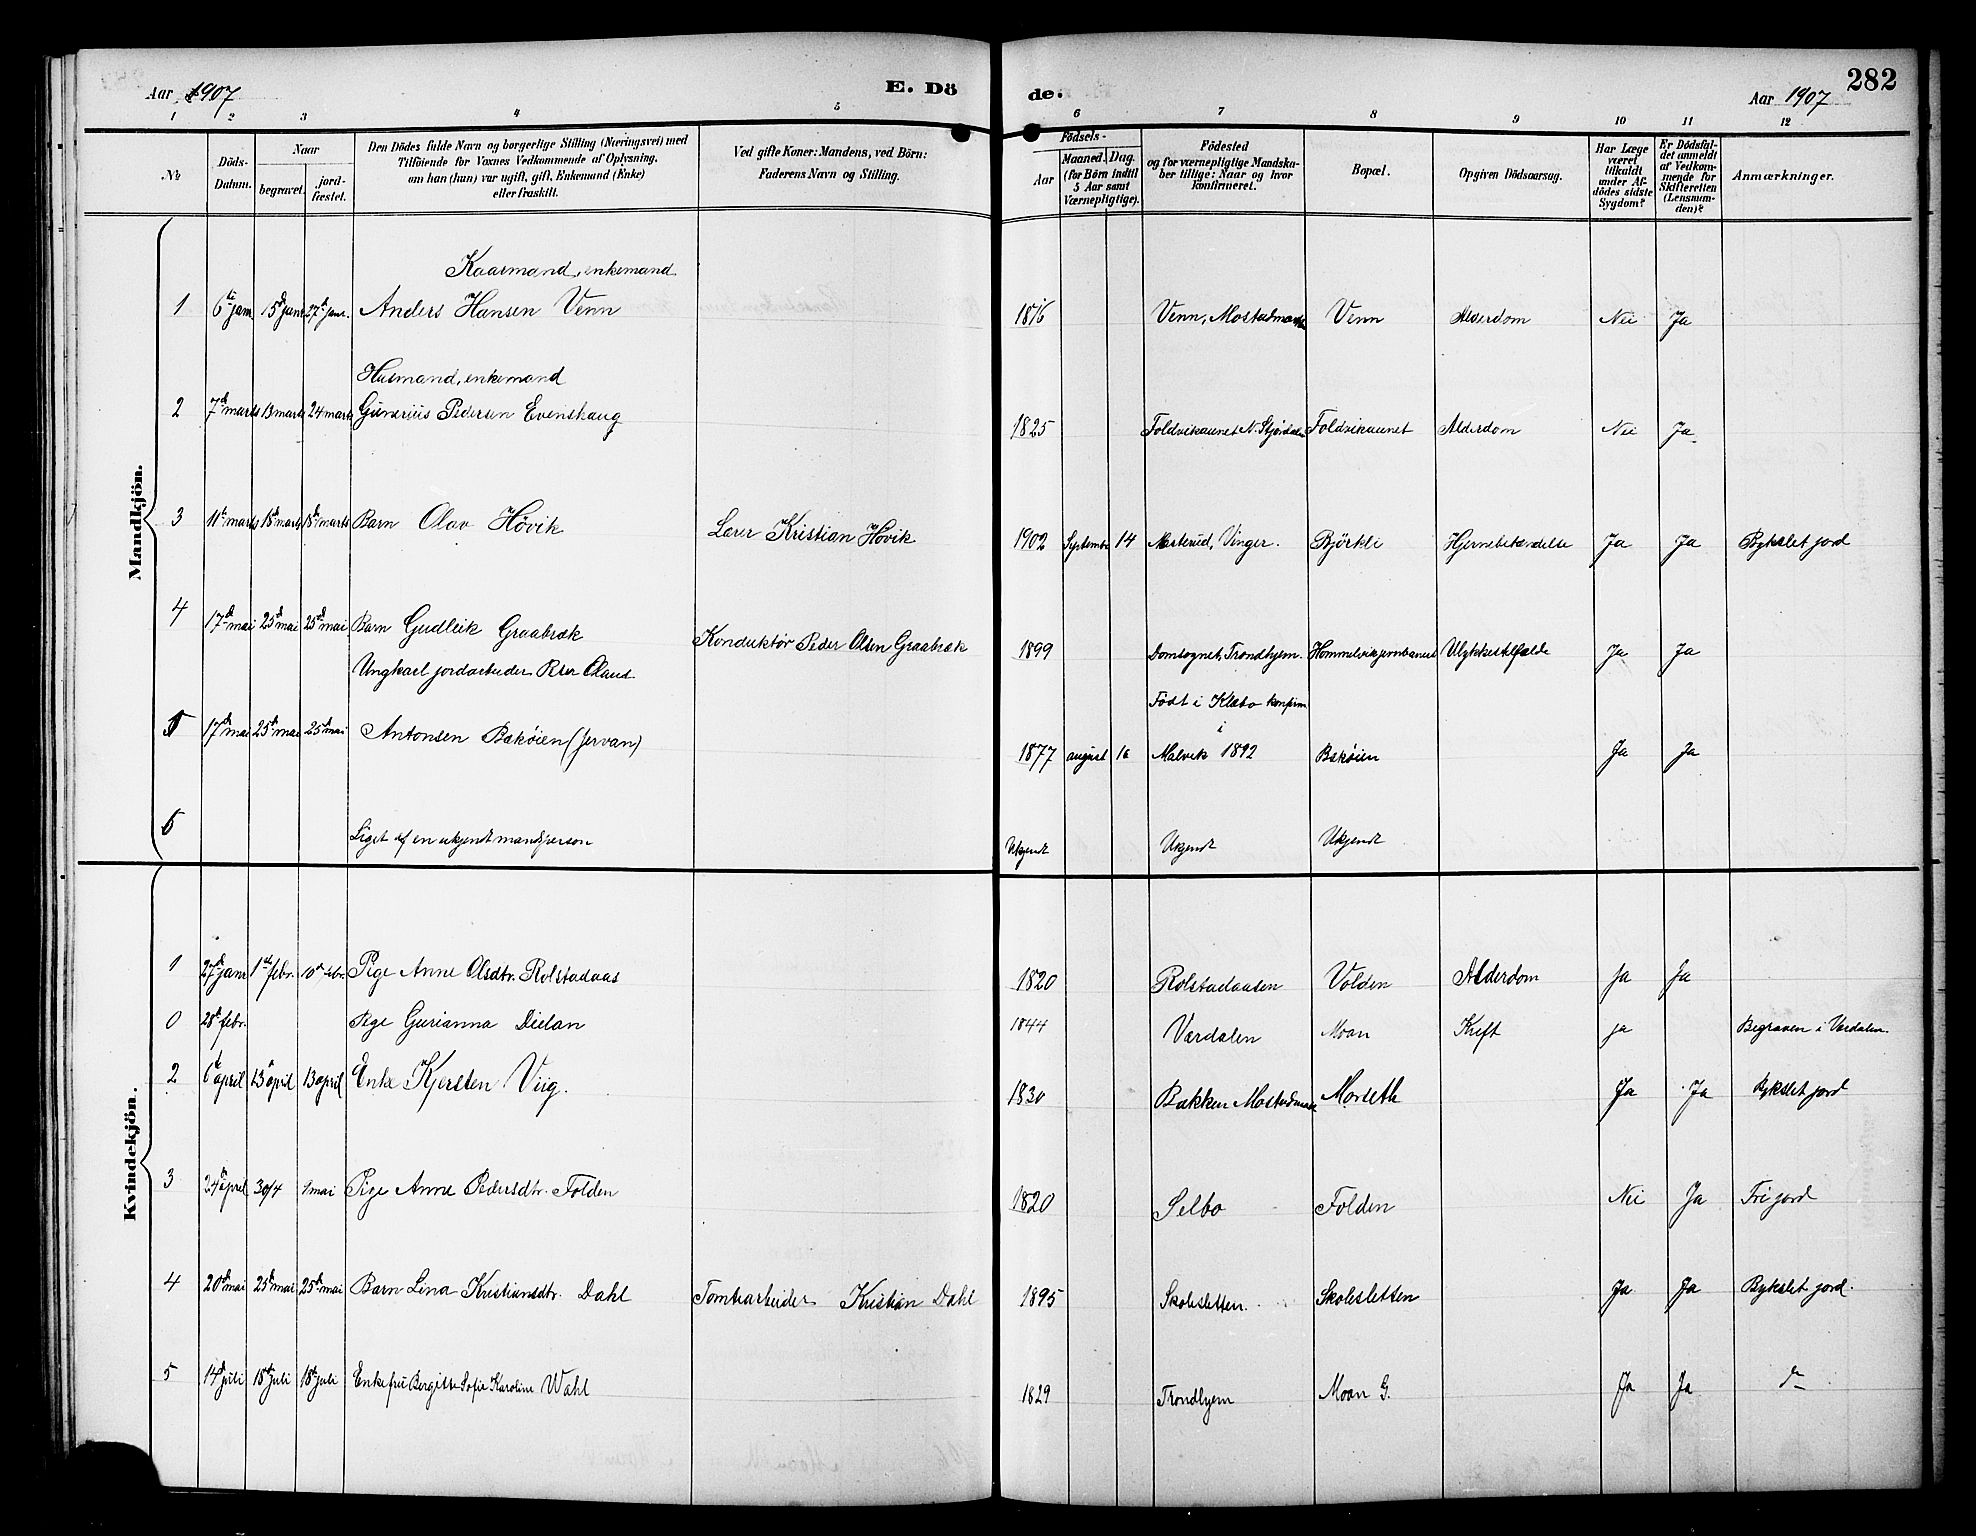 Aar 1907 E. Dö
de. Aar 1907 282
1 2 3 4 5 6 7 8 9 10 11 12
№
Döds-Datum.
Naar
begravet.
jord-fæstet.
Den Dödes fulde Navn og borgerlige Stilling (Næringsvei) med
Tilföiende for Voxnes Vedkommende af Oplysning,
om han (hun) var ugift, gift, Enkemand (Enke)
eller fraskilt.
Ved gifte Koner: Mandens, ved Börn:
Faderens Navn og Stilling.
Födsels-
Aar
Maaned. Dag.
(for Börn indtil
5 Aar samt
Værnepligtige).
Födested
og for værnepligtige Mandska-
ber tillige: Naar og hvor
konfirmeret.
Bopæl.
Opgiven Dödsaarsag.
Har Læge
været
tilkaldt
under Af-
dödes sidste
Sygdom?
Er Dödsfal-
det anmeldt
af Vedkom-
mende for
Skifteretten
(Lensman-
den)?
Anmærkninger.
Mandkjön.
Kaarmand, enkemand
1 6te jan 15de janr 27de janr. Anders Hansen Venn 1816 Venn, Mostadmarken Venn Alderdom Nei Ja
Husmand, enkemand
2 7de marts 13 marts 24 marts Gunerius Pedersen Evenshaug 1825 Foldvikaunet N. Stjørdalen Foldvikaunet Alderdom Nei Ja
3 11te marts 18de marts 18de marts Barn Olav Høvik Lærer Kristian Høvik 1902 September 14 Austerud, Vinger. Björkli Hjernebetændelse Ja Ja Bykslet jord
4 17de mai 25de mai 25de mai Barn Gudleik Graabræk Konduktør Peder Olsen Graabræk 1899 Domsognet, Trondhjem. Ulykkestilfælde Ja Ja
Ungkarl jordarbeider Peter Olaus Födt i Klæbo konfirm
i
5 17de mai 25de mai 25de mai Antonsen Bækøien (Jervan) 1877 august 16 Malvik 1892 Bækøien Ja Ja
6 Liget af en ukjendt mandsperson Ukjendt Ukjendt Ukjendt
Kvindekjön.
1 27de janr 1ste febr. 10de febr. Pige Anne Olsdtr. Rolstadaas 1820 Rolstadaasen Volden Alderdom Ja Ja
0 28de febr. Pige Gurianna Dillan 1844 Værdalen Moan Kræft ja Begraven i Værdalen.
2 6te april 13de april 13 april Enke Kjersten Viig. 1830 Bakken Mostadmark Morseth Ja Ja Bykslet jord
3 24de april 30/4 1 mai Pige Anne Pedersdtr. Folden 1820 Selbo Folden Nei Ja Fri jord
4 20de mai 25de mai 25de mai Barn Lina Kristiansdtr. Dahl Tomtearbeider Kristian Dahl 1895 Skolesletten. Skolesletten Ja Ja Bykslet jord.
5 14de juli 18de juli 18de juli Enkefru Bergitte Sofie Karoline Wahl 1829 Trondhjem Moan G. Ja Ja do